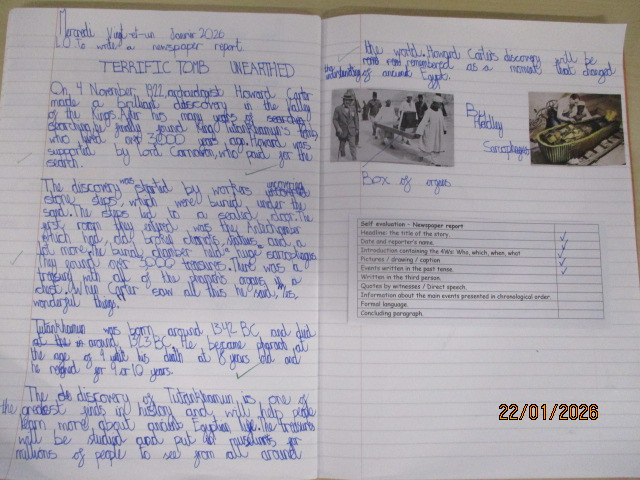 Mercredi Vingt-et-un Janvier 2026
LO To write a newspaper report.
TERRIFIC TOMB UNEARTHED
On, 4 November, 1922, archaeologist Howard Carter
made a brilliant discovery in the Valley
of the Kings. After his many years of searching
searching he finally found King Tutankhamun's tomb,
who lived over 3000 years ago. Howard was
supported by Lord Carnarvon, who paid for the
search.
The discovery was started by workers
stone steps, which were buried, under the
sand. The steps led to a sealed door. The
first room they entered was the Antechamber
which had, old broken chariots, statues and, a
lot more. The burial chamber held a huge sarcophagus.
They found over 3000 treasures. There was a
treasury with all of the pharaoh's organs in a
chest. When Carter saw all this he said, "yes,
wonderful things.
Tutankhamun was born around, 1342 BC and died
at the in around 1323 BC. He became pharaoh at
the age of 9 until his death at 18 years old and
he reigned for 9 or 10 years.
The discovery of Tutankhamun is one of
the greatest finds in history and will help people
learn more about ancient Egyptian life. The treasures
will be studied and put in museums for
millions of people to see from all around
the world. Howard Carter's discovery will be
remembered as a moment that changed
the understanding of ancient Egypt.
By
Hadley
Sarcophagus
Box of organs
Self evaluation – Newspaper report
Headline: the title of the story.
Date and reporter's name.
Introduction containing the 4Ws: Who, which, when, what
Pictures / drawing / caption
Events written in the past tense.
Written in the third person.
Quotes by witnesses / Direct speech.
Information about the main events presented in chronological order.
Formal language.
Concluding paragraph.
22/01/2026